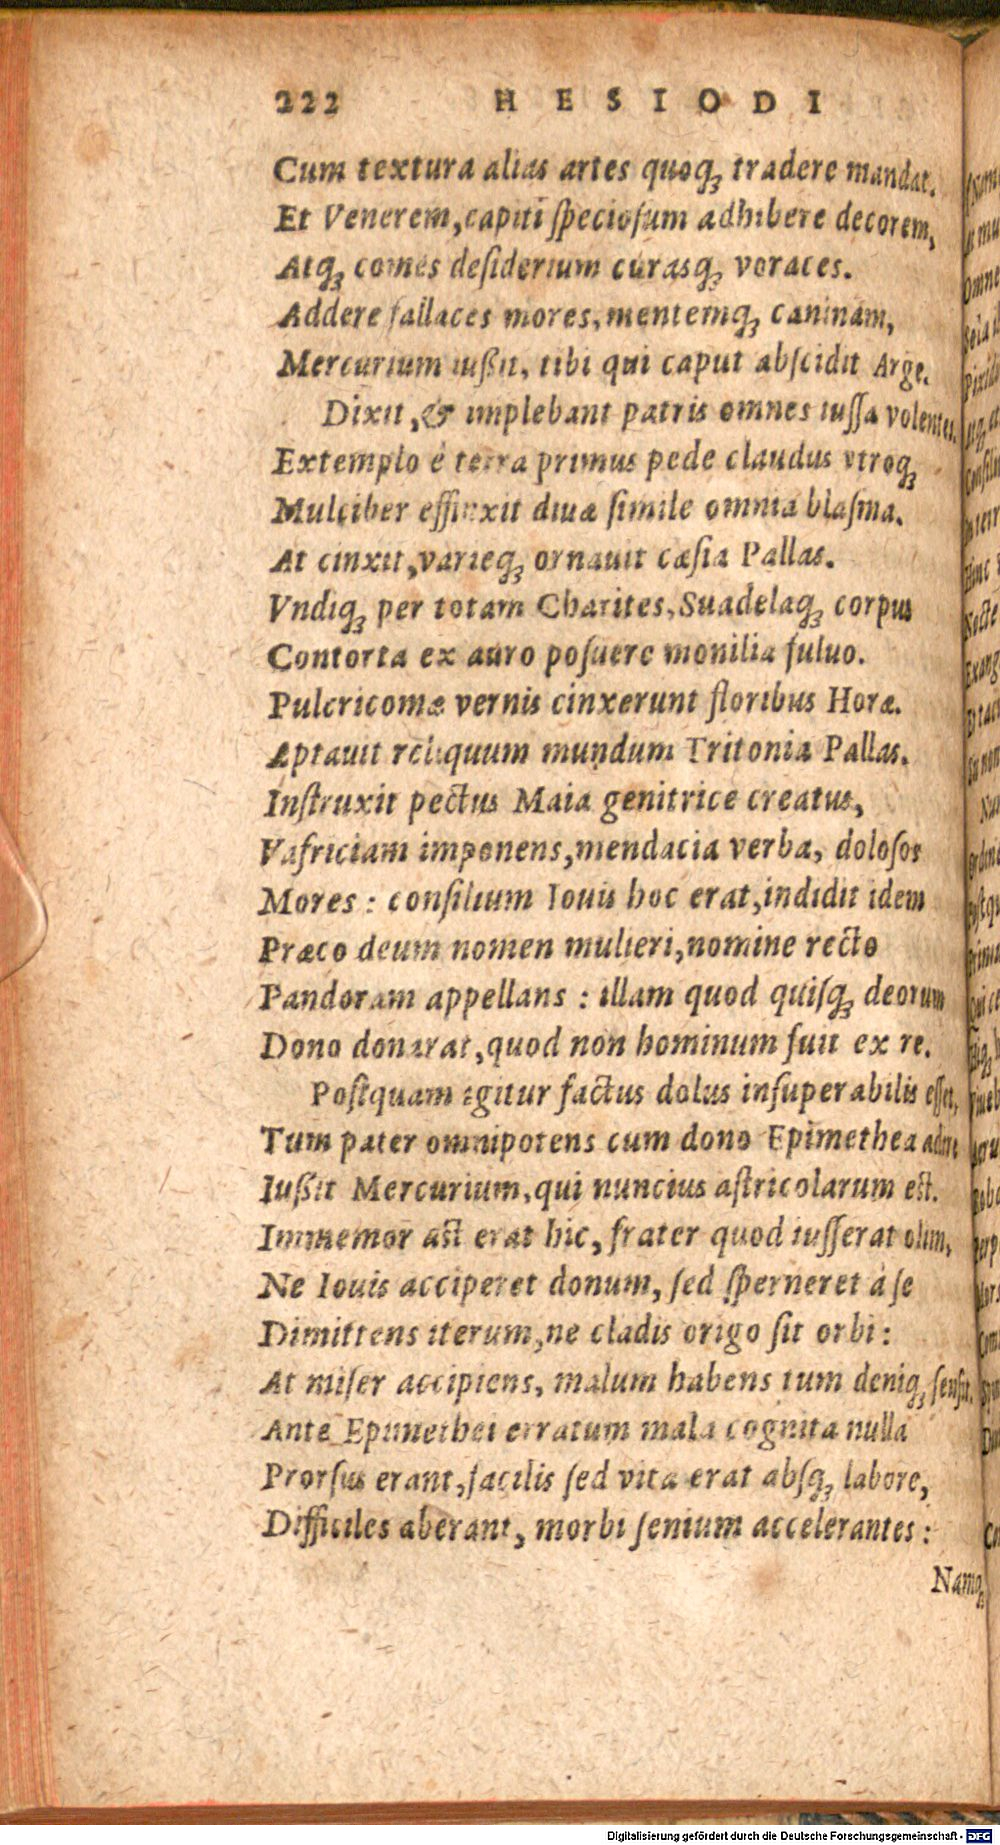 222 HESIODI
Cum textura alias artes quoq; tradere mandat.
Et Venerem, capiti ſpecioſum adhibere decorem,
Atq; comes deſiderium curasq; voraces.
Addere fallaces mores, mentemq; caninam,
Mercurium iußit, tibi qui caput abſcidit Arge.
Dixit, & implebant patris omnes iuſſa volentes.
Extemplo è terra primus pede claudus vtroq;
Mulciber effinxit diuæ ſimile omnia blaſma.
At cinxit, varieq; ornauit cæſia Pallas.
Vndiq; per totam Charites, Suadelaq; corpus
Contorta ex auro poſuere monilia fuluo.
Pulcricomæ vernis cinxerunt floribus Horæ.
Aptauit reliquum mundum Tritonia Pallas.
Inſtruxit pectus Maia genitrice creatus,
Vafriciam imponens, mendacia verba, doloſos
Mores : conſilium Iouis hoc erat, indidit idem
Præco deum nomen mulieri, nomine recto
Pandoram appellans : illam quod quiſq; deorum
Dono donarat, quod non hominum fuit ex re.
Poſtquam igitur factus dolus inſuperabilis eſſet,
Tum pater omnipotens cum dono Epimethea adire
Iußit Mercurium, qui nuncius aſtricolarum eſt.
Immemor aſt erat hic, frater quod iuſſerat olim,
Ne Iouis acciperet donum, ſed ſperneret à ſe
Dimittens iterum, ne cladis origo ſit orbi :
At miſer accipiens, malum habens tum deniq; ſenſit.
Ante Epimethei erratum mala cognita nulla
Prorſus erant, facilis ſed vita erat abſq; labore,
Difficiles aberant, morbi ſenium accelerantes :
Namq;
Digitalisierung gefördert durch die Deutsche Forschungsgemeinschaft - DFG